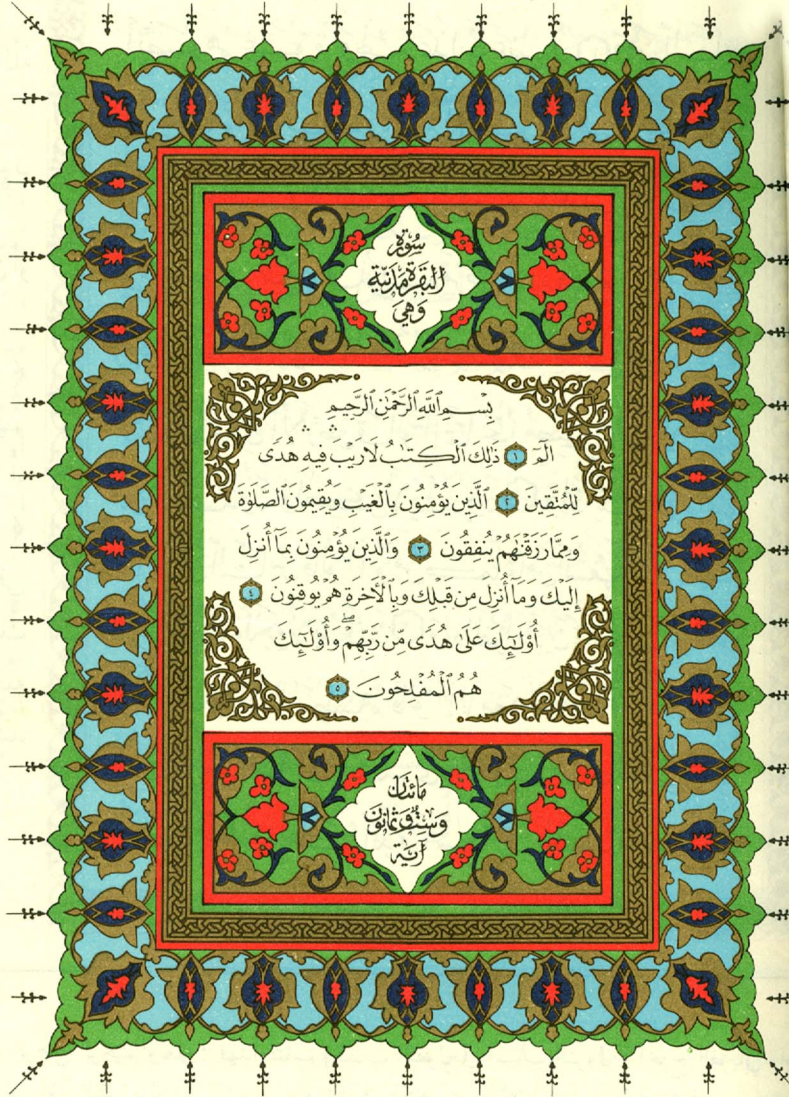 سُورَة
الْبَقَرَةِ مَدَنِيَّة
وَهِيَ
بِسْمِ ٱللَّهِ ٱلرَّحْمَٰنِ ٱلرَّحِيمِ
الٓمٓ ١ ذَٰلِكَ ٱلْكِتَٰبُ لَا رَيْبَ فِيهِ هُدًى
لِّلْمُتَّقِينَ ٢ ٱلَّذِينَ يُؤْمِنُونَ بِٱلْغَيْبِ وَيُقِيمُونَ ٱلصَّلَوٰةَ
وَمِمَّا رَزَقْنَٰهُمْ يُنفِقُونَ ٣ وَٱلَّذِينَ يُؤْمِنُونَ بِمَآ أُنزِلَ
إِلَيْكَ وَمَآ أُنزِلَ مِن قَبْلِكَ وَبِٱلْأٓخِرَةِ هُمْ يُوقِنُونَ ٤
أُو۟لَٰٓئِكَ عَلَىٰ هُدًى مِّن رَّبِّهِمْ ۖ وَأُو۟لَٰٓئِكَ
هُمُ ٱلْمُفْلِحُونَ ٥
مَائَتَان
وَسِتٌّ وَثَمَانُون
آيَة